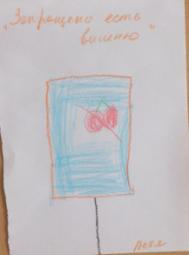 "Запрещено есть
вишню"